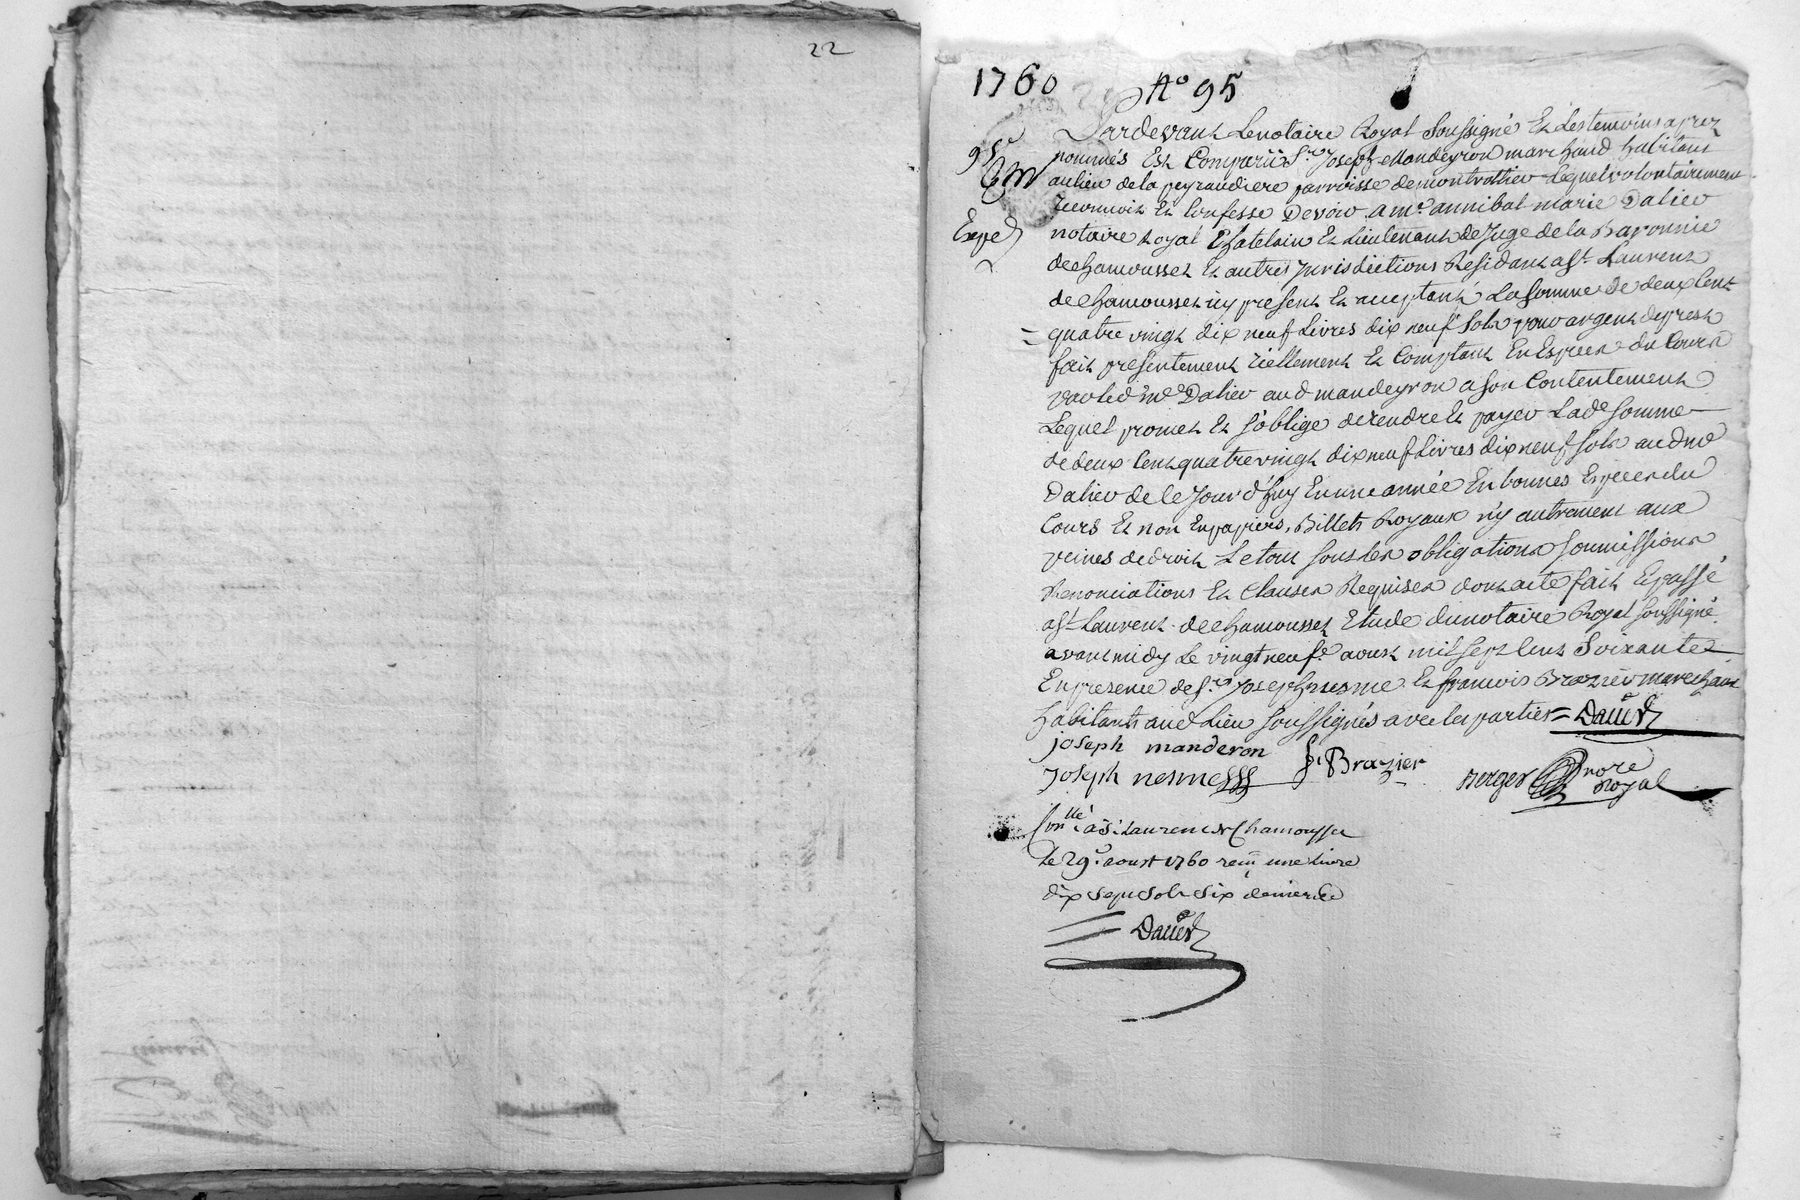 22
1760 No 95
Pardevant Lenotaire Royal Soussigné Et Lestemoins aprez
nommés Est Comparu Sr. Joseph Mandeyron marchand habitant
aulieu dela peyraudiere parroisse demontrottier Lequel volontairement
reconnoit Et Confesse Devoir a me. annibal marie Dalier
notaire Royal Chatelain Et Lieutenant deJuge dela Baronnie
dechamousset Et autres Jurisdictions Residant a St. Laurent
dechamousset icy present Et acceptant La Somme de deux Cent
quatre vingt dix neuf Livres dix neuf Sols pour argent de prest
fait presentement réellement Et Comptant En Especes du Cours
par led. me Dalier aud mandeyron a son Contentement
Lequel promet Et S'oblige de rendre Et payer Lade Somme
de deux Cent quatre vingt dix neuf Livres dix neuf Sols aud me
Dalier de Ce Jour d'huy En une année En bonnes Especes du
Cours Et non En papiers, Billets Royaux n'y autrement aux
peines dedroit Le tout Sous les obligations Soumissions
Renonciations Et Clauses Requises dont acte fait Et passé
a St Laurent dechamousset Etude dunotaire Royal Soussigné
avant midy Le vingt neufe. aoust mil Sept Cens Soixante
En presence de Srs Joseph nesme Et francois Brazier marchands
habitants aud Lieu Soussignés avec les parties = Dalier
joseph manderon
f Brazier
Joseph nesme
Berger nore Royal
Exped
95e
Conlle a St Laurent de Chamousset
Le 29e. aoust 1760 recu une Livre
dix Sept Sols Six deniers
Dalier